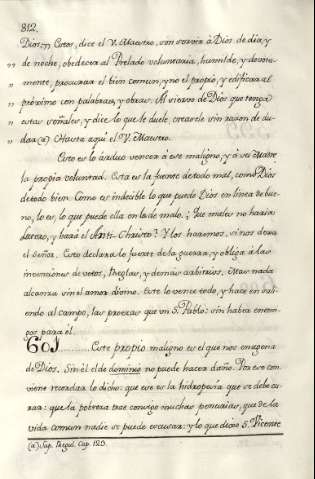 812.
Dios,,, Estos, dice el V. Maestro, son servir à Dios de dia, y
,, de noche, obedecer al Prelado voluntaria, humilde, y devota-
,, mente, procurar el bien comun, y no el propio, y edificar al
,, proximo con palabras, y obras. Al siervo de Dios que tenga
,, estas señales, y dice lo que le duele, creansele sin razon de du-
,, dar (a) Hasta aquí el V. Maestro.
Esto es lo arduo vencer à este maligno, y à su Madre
la propia voluntad. Esta es la fuente de todo mal, como Dios
de todo bien. Como es indecible lo que puede Dios en linea de bue-
no, lo es, lo que puede ella en la de malo. ¿Que males no haria
Lutero, y hará el Anti-Christo? Y los haremos, si nos dexa
el Señor. Esto declara lo fuerte de la guerra, y obliga à las
invenciones de votos, Reglas, y demas arbitrios. Mas nada
alcanza sin el amor divino. Este lo vence todo, y hace en sali-
endo al campo, las proezas que un S. Pablo: sin haber enemi-
gos para él.
601 Este propio maligno es el que nos enagena
de Dios. Sin él el demonio no puede hacer daño. Por eso con-
viene recordar lo dicho: que ese es la hidropesía que se debe cu-
rar: que la pobreza trae consigo muchas penurias, que de la
vida comun nadie se puede excusar: y lo que dixo S. Vicente
(a) Sup. Regul. Cap. 125.